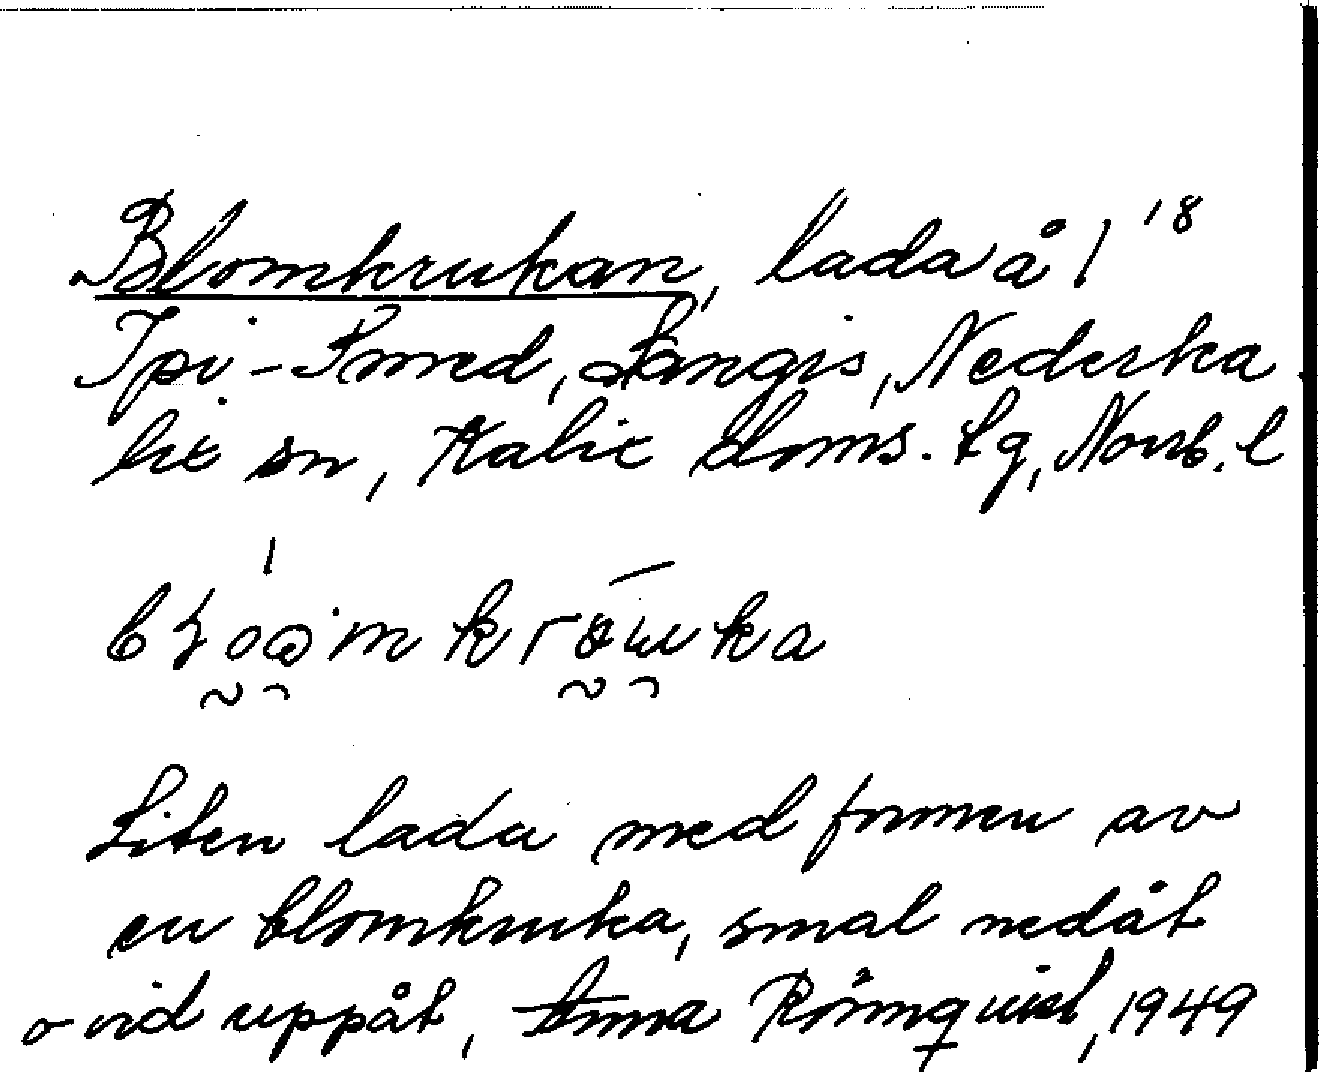 Blomkrukan, lada å 1/18
Ipi-Smed, Sangis, Nederka
lix sn, Kalix doms. lg, Norrb. l
Liten lada med formen av
en blomkruka, smal nedåt
o vid uppåt, Anna Rönnqvist, 1949